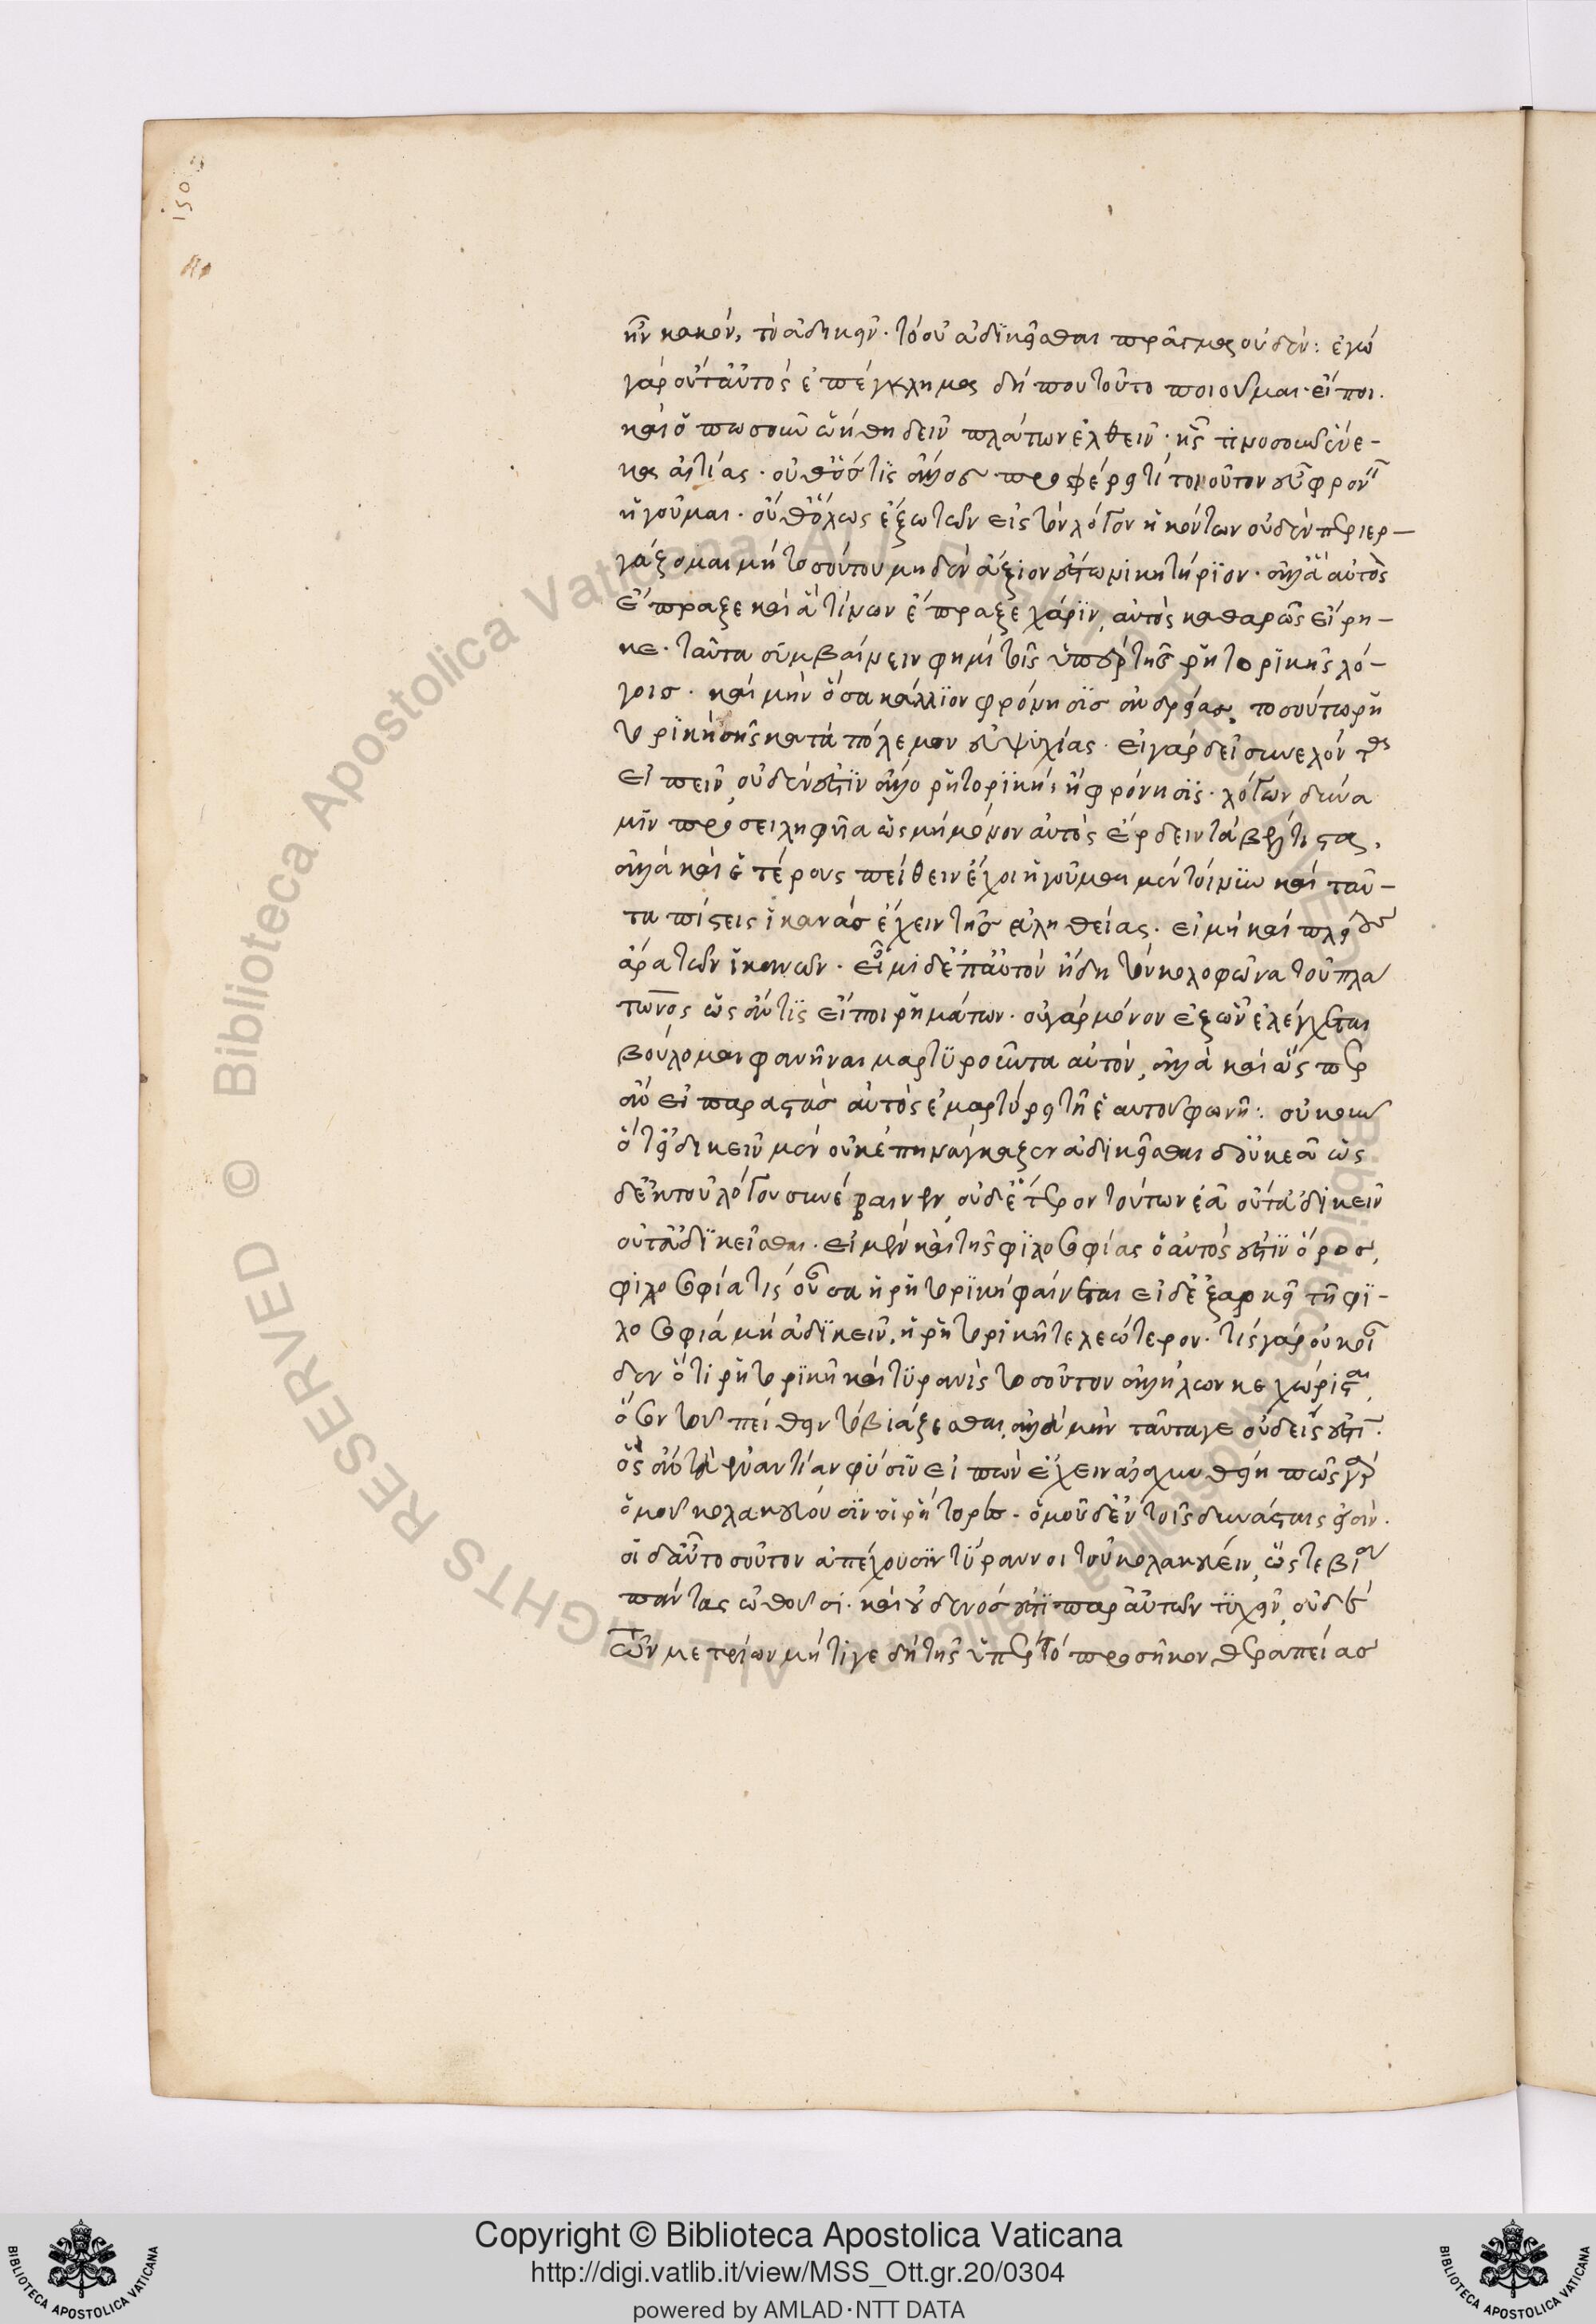 ἦν κακόν, τὸ ἀδικεῖν· τὸ οὐ ἀδικεῖσθαι πρᾶγμα οὐδέν: ἐγὼ
γὰρ οὔτ' αὐτὸς ἐπ' ἔγκλημα δή που τοῦτο ποιοῦμαι· εἴποι
καὶ ὅπωσοῦν ᾠήθη δεῖν πλάτων ἐλθεῖν· ἧς τινοσοῦν ἕνε-
κα αἰτίας· οὔθ' ὅστις ἄλλος προφέρει τί τοιοῦτον εὖ φρον
ἡγοῦμαι· οὔθ' ὅλως ἔξω τῶν εἰς τὸν λόγον ἡκόντων οὐδὲν περιερ-
γάζομαι μὴ τοσούτου μηδὲν ἄξιον ἔστω νικητήριον· ἀλλ' ἃ αὐτὸς
ἔπραξε καὶ ἃ τίνων ἔπραξε χάριν, αὐτὸς καθαρῶς εἴρη-
κε· ταῦτα συμβαίνειν φημὶ τοῖς ὑπὲρ τῆς ῥητορικῆς λό-
γοις· καὶ μὴν ὅσα κάλλιον φρόνησις ἀνδρείας, τοσούτω ῥη
τορικὴ τῆς κατὰ πόλεμον εὐψυχίας· εἰ γὰρ δεῖ συνελόντα
εἰπεῖν, οὐδέν ἐστιν ἄλλο ῥητορική, ἢ φρόνησις· λόγων δύνα
μιν προσειληφυῖα ὡς μὴ μόνον αὐτὸς εὑρεῖν τὰ βέλτιστα,
ἀλλὰ καὶ ἑτέρους πείθειν ἔχοι ἡγοῦμαι μὲν τοίνυν καὶ ταῦ-
τα πίστεις ἱκανὰς ἔχειν τῆς ἀληθείας· εἰ μὴ καὶ πλείους
ἄρα τῶν ἱκανῶν· εἶμι δ' ἐπ' αὐτὸν ἤδη τὸν κολοφῶνα τοῦ πλα
τωνος ὡς ἄν τις εἴποι ῥημάτων· οὐ γὰρ μόνον ἐξ ὧν ἐλέγχεται
βούλομαι φανῆναι μαρτυροῦντα αὐτόν, ἀλλὰ καὶ ὥσπερ
ἂν εἰ παραστὰς αὐτὸς ἐμαρτύρει τῇ ἑαυτοῦ φωνῇ: οὐκοῦν
ὅτ' ἀδικεῖν μὲν οὐκ ἐπηνάγκαζεν ἀδικεῖσθαι δ' οὐκ ἐᾶ ὡς
δ' ἐκ τοῦ λόγου συνέβαινεν, οὐδέτερον τούτων ἐᾶ οὔτ' ἀδικεῖν
οὔτ' ἀδικεῖσθαι· εἰ μὲν καὶ τῆς φιλοσοφίας ὁ αὐτός ἐστιν ὅρος,
φιλοσοφία τίς οὖσα ἡ ῥητορικὴ φαίνεται εἰ δ' ἐξαρκεῖ τῇ φι-
λοσοφία μὴ ἀδικεῖν, ἡ ῥητορικὴ τελεώτερον· τίς γὰρ οὐκ οἶ
δεν ὅτι ῥητορικὴ καὶ τυραννὶς τοσοῦτον ἀλλήλων κεχώρισται,
ὅσον τοῦ πείθειν τὸ βιάζεσθαι, ἀλλὰ μὴν ταῦτα γε οὐδείς ἐστι·
ὃς ἂν τὴν ἐναντίαν φύσιν εἰπὼν ἔχειν αἰσχυνθείη πῶς γὰρ
ὁμοῦ κολακεύουσιν οἱ ῥήτορες· ὁμοῦ δ' ἐν τοῖς δυνάσταις εἰσιν·
οἱ δ' αὖ τοσοῦτον ἀπέχουσιν τύραννοι τοῦ κολακεύειν, ὥστε βία
πάντας ὠθοῦσι· καὶ οὐδενός ἐστι παρ' αὐτῶν τυχεῖν, οὐδὲ
τῶν μετρίων μή τί γε δὴ τῆς ὑπὲρ τὸ προσῆκον θεραπείας
Copyright © Biblioteca Apostolica Vaticana
http://digi.vatlib.it/view/MSS_Ott.gr.20/0304
powered by AMLAD·NTT DATA